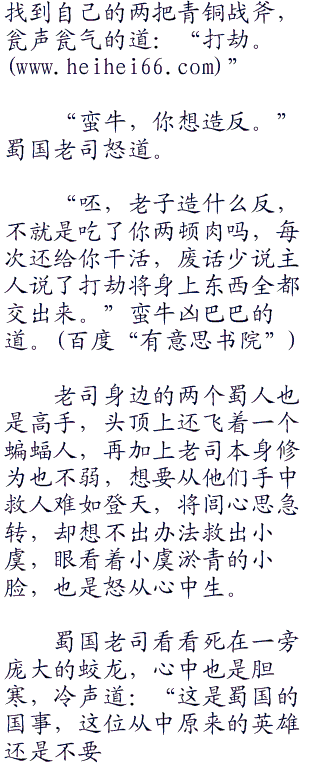 找到自己的两把青铜战斧，
瓮声瓮气的道：“打劫。
(www.heihei66.com)”
“蛮牛，你想造反。”
蜀国老司怒道。
“呸，老子造什么反，
不就是吃了你两顿肉吗，每
次还给你干活，废话少说主
人说了打劫将身上东西全都
交出来。”蛮牛凶巴巴的
道。(百度“有意思书院”)
老司身边的两个蜀人也
是高手，头顶上还飞着一个
蝙蝠人，再加上老司本身修
为也不弱，想要从他们手中
救人难如登天，将闾心思急
转，却想不出办法救出小
虞，眼看着小虞淤青的小
脸，也是怒从心中生。
蜀国老司看看死在一旁
庞大的蛟龙，心中也是胆
寒，冷声道：“这是蜀国的
国事，这位从中原来的英雄
还是不要